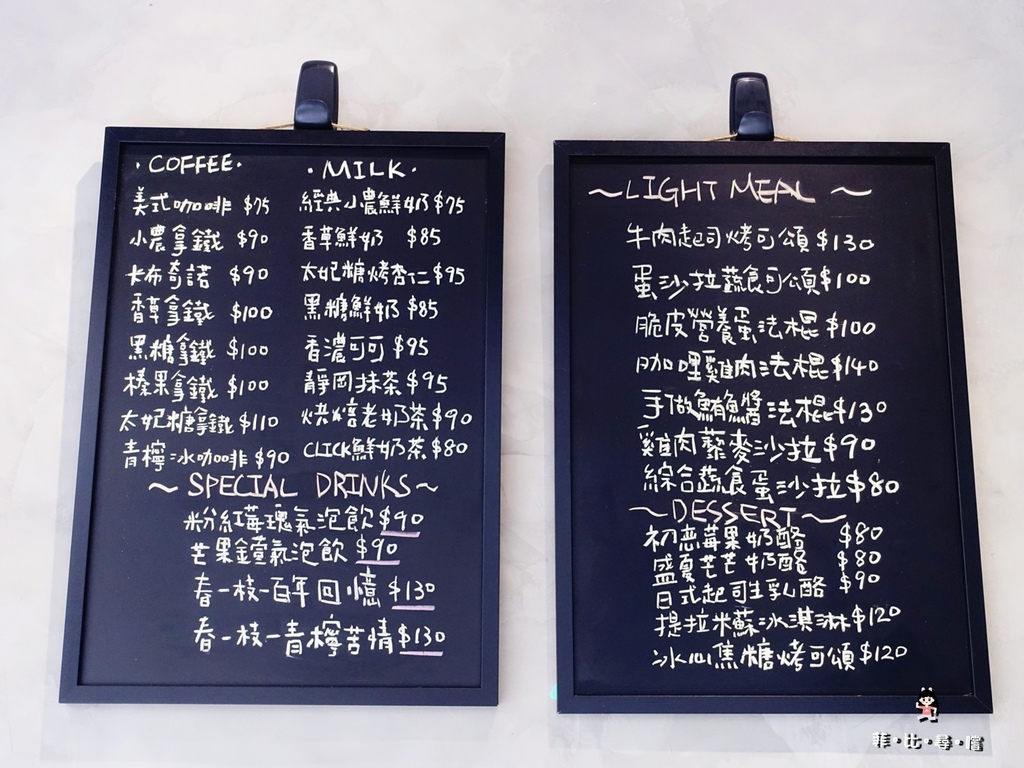 ·COFFEE·
美式咖啡 $75
小農拿鐵 $90
卡布奇諾 $90
香草拿鐵 $100
黑糖拿鐵 $100
榛果拿鐵 $100
太妃糖拿鐵 $110
青檸冰咖啡 $90
·MILK·
經典小農鮮奶 $75
香草鮮奶 $85
太妃糖烤杏仁 $95
黑糖鮮奶 $85
香濃可可 $95
靜岡抹茶 $95
烘焙老奶茶 $90
CLICK鮮奶茶 $80
~SPECIAL DRINKS~
粉紅莓瑰氣泡飲 $90
芒果鐘氣泡飲 $90
春一枝-百年回憶 $130
春一枝-青檸苦情 $130
~LIGHT MEAL~
牛肉起司烤可頌 $130
蛋沙拉蔬食可頌 $100
脆皮營養蛋法棍 $100
咖哩雞肉法棍 $140
手做鮪魚醬法棍 $130
雞肉藜麥沙拉 $90
綜合蔬食蛋沙拉 $80
~DESSERT~
初戀莓果奶酪 $80
盛夏芒芒奶酪 $80
日式起司生乳酪 $90
提拉米蘇冰淇淋 $120
冰心焦糖烤可頌 $120
菲·比·尋·嚐